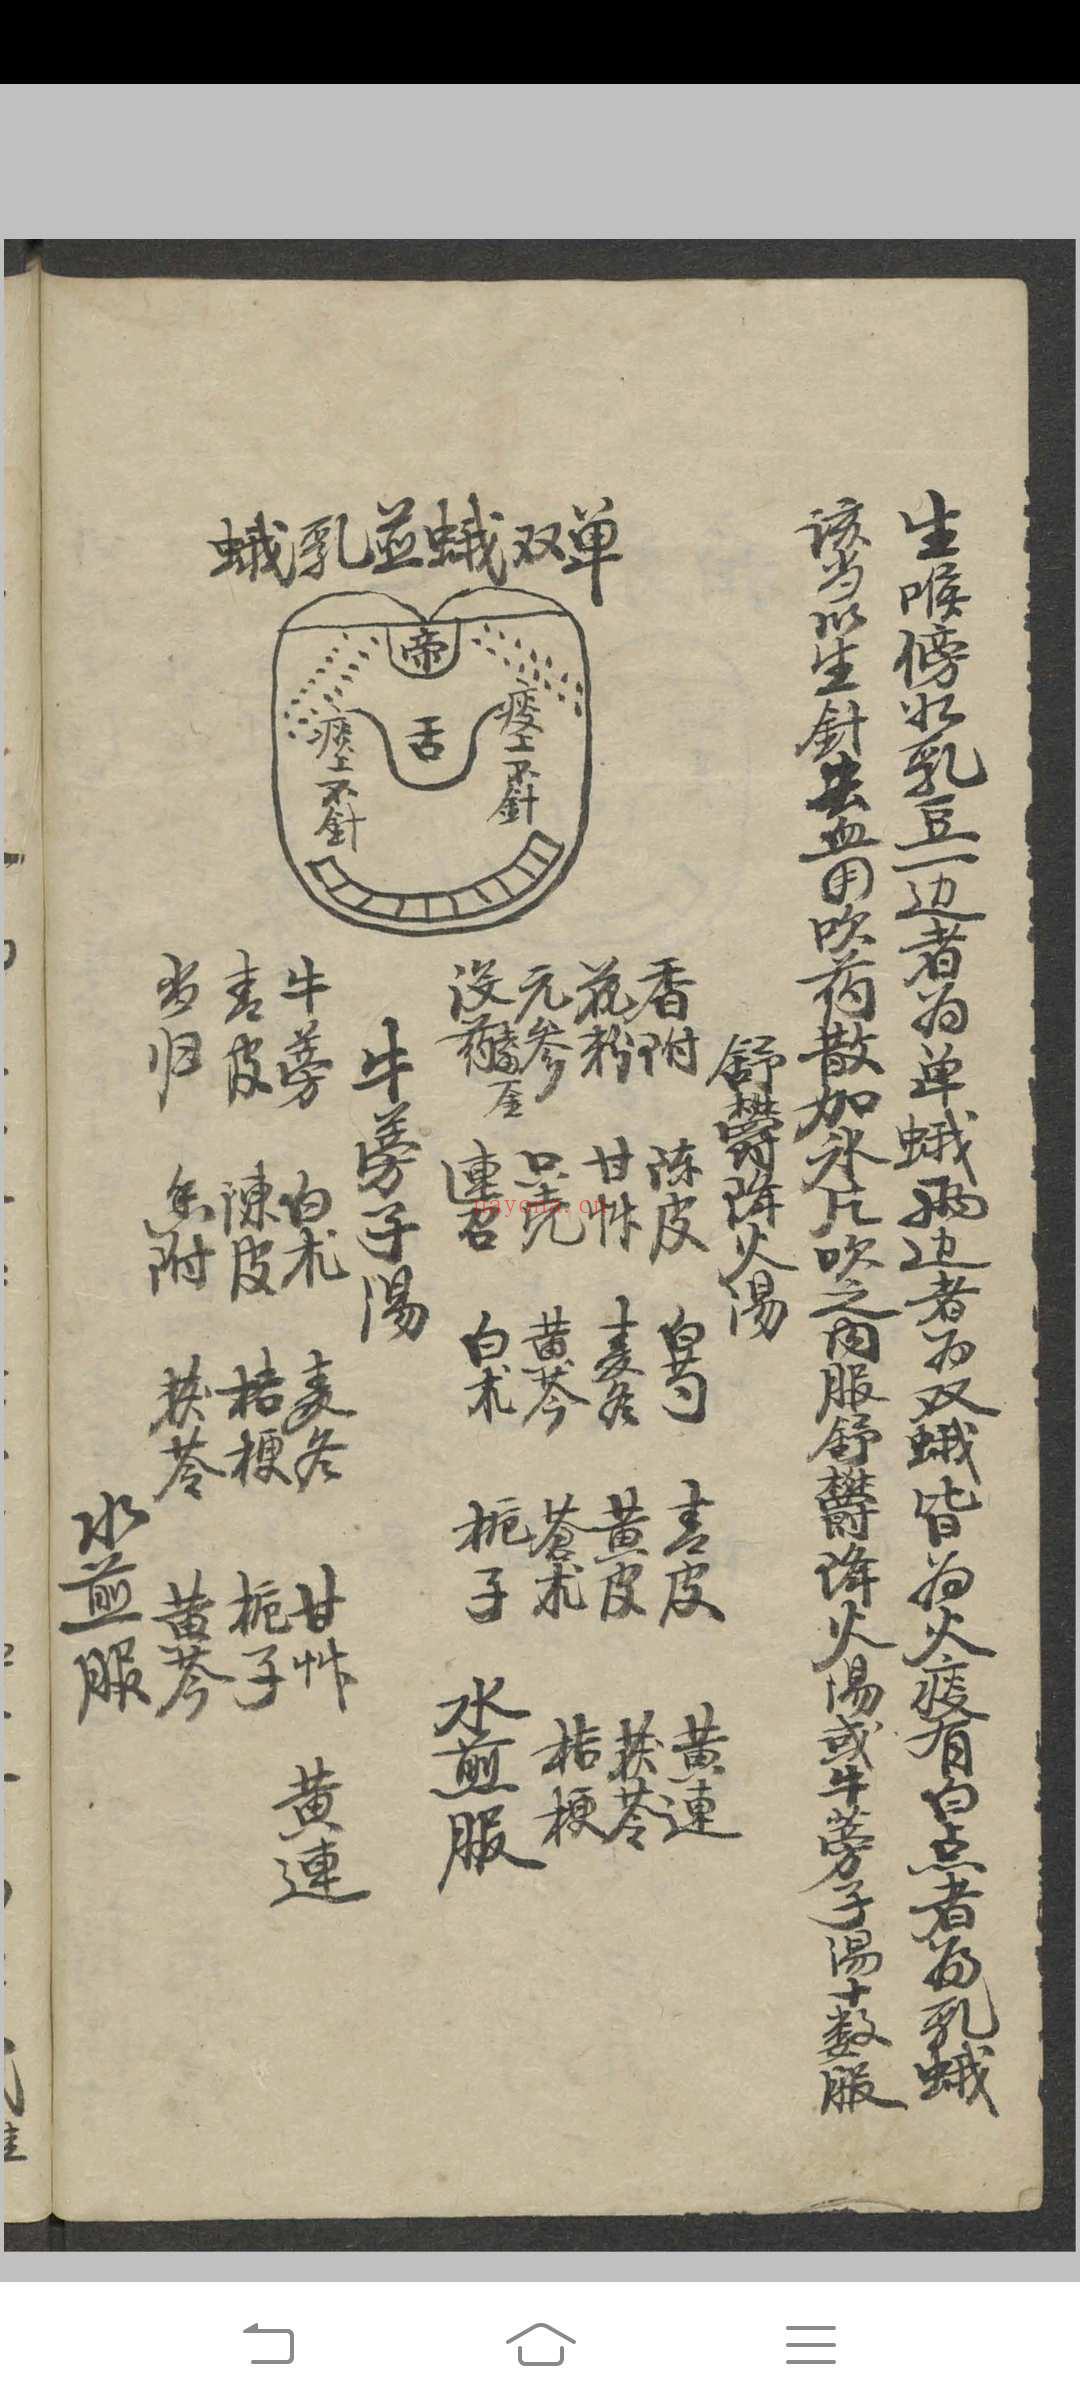 生喉傍如乳豆一边者为单蛾两边者为双蛾皆为火痰有白点者为乳蛾
该当以生針去血用吹药散加氷片吹之内服舒欝降火湯或牛蒡子湯十数服
单双蛾並乳蛾
帝
舌
痰上不針
痰上不針
舒欝降火湯
香附 陈皮 白芍 青皮 黄連
花粉 甘艸 麦冬 黄皮 茯苓
元参 只壳 黄芩 蒼术 桔梗
没药 連召 白术 栀子 水煎服
牛蒡子湯
牛蒡 白术 麦冬 甘艸 黄連
青皮 陳皮 桔梗 栀子
当归 香附 茯苓 黄芩
水煎服
nayona.cn